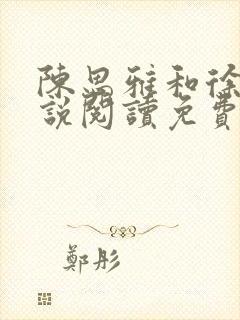 陳思雅和徐
說閱讀免費
鄭彤